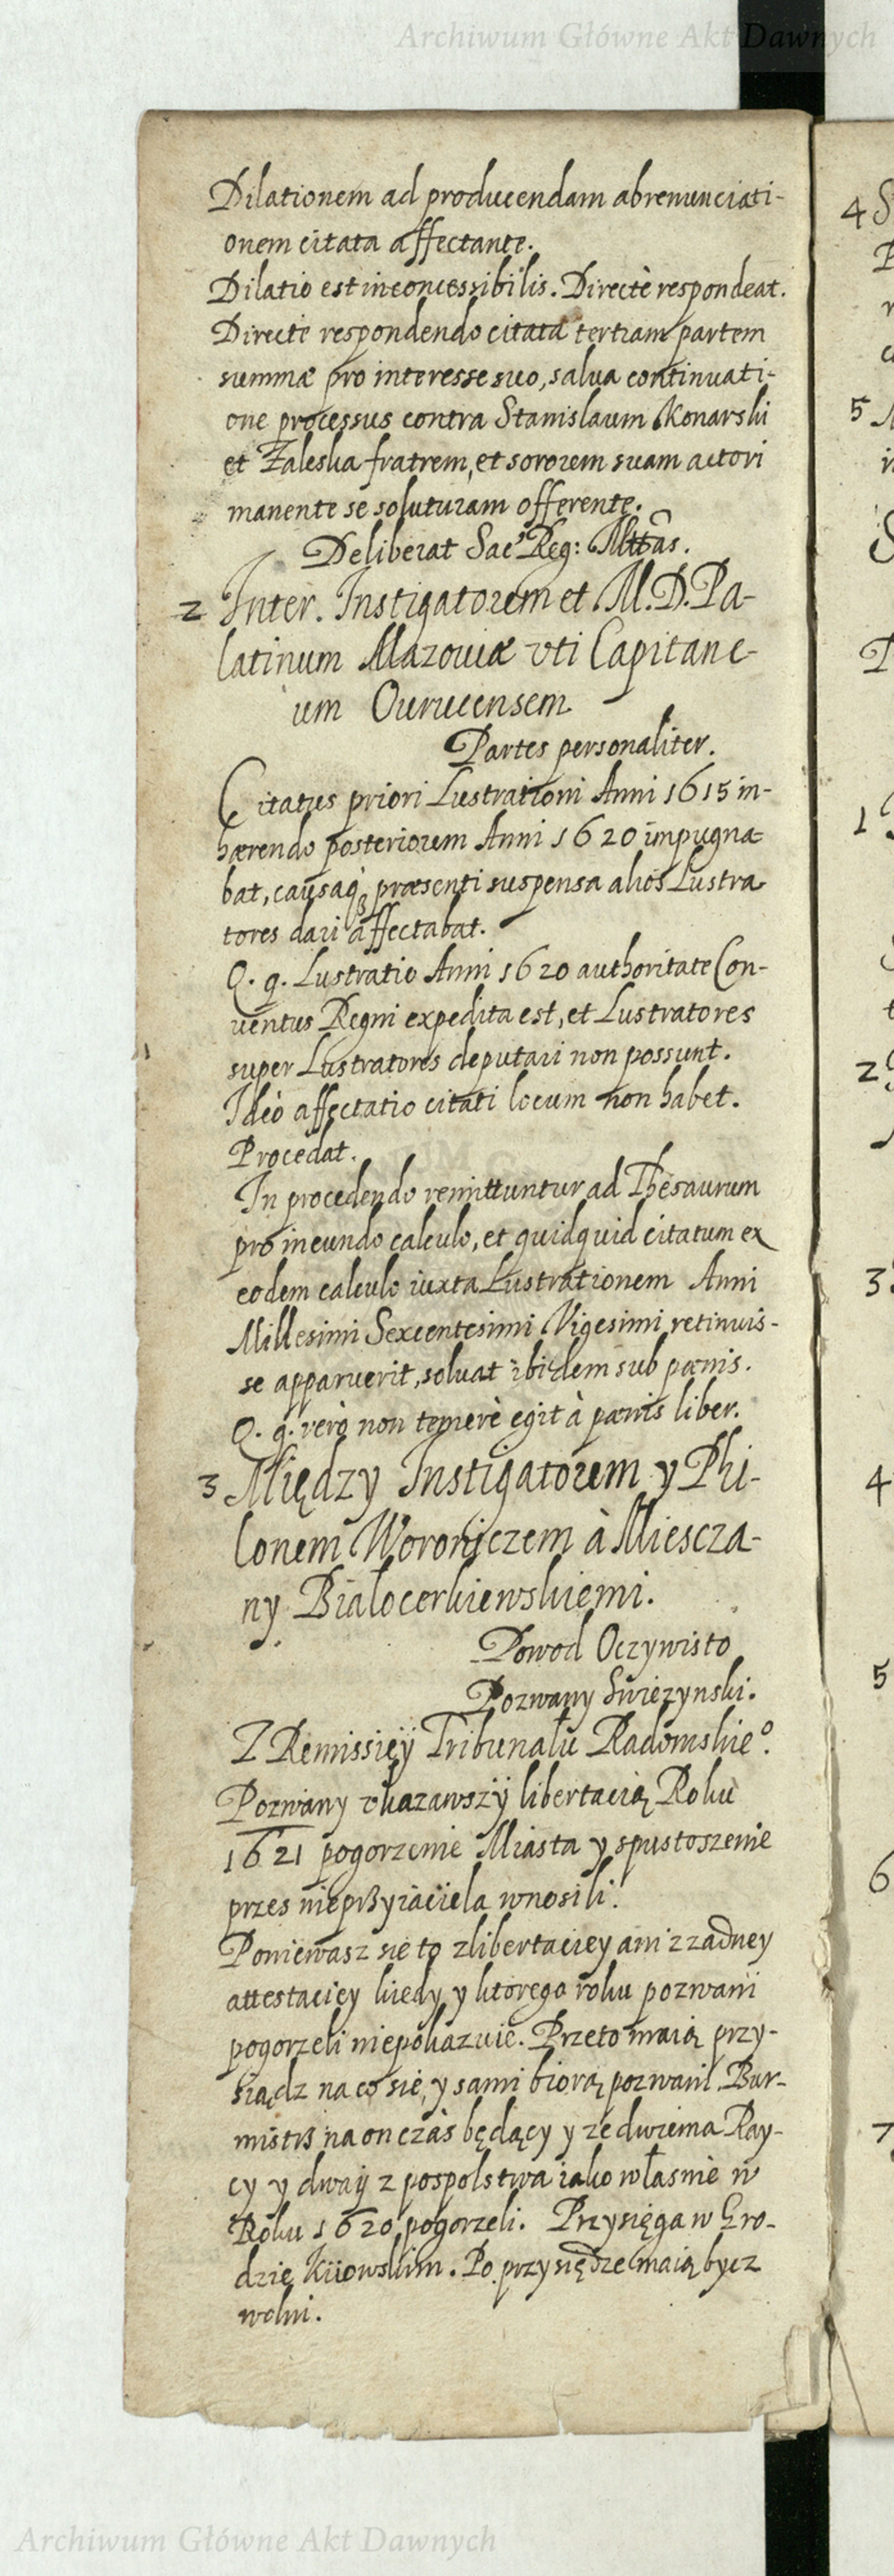 Archiwum Główne Akt Dawnych
Dilationem ad producendam abrenunciati-
onem citata affectante.
Dilatio est inconcessibilis. Directè respondeat.
Directè respondendo citata tertiam partem
summæ pro interesse suo, salua continuati-
one processus contra Stanislaum Konarski
et Zaleska fratrem, et sororem suam actori
manente se soluturam offerente.
Deliberat Sac: Reg: Mttas.
2 Inter. Instigatorem et M.D.Pa-
latinum Mazouiæ vti Capitane-
um Ouruccensem
Partes personaliter.
Citatus priori Lustrationi Anni 1615 in-
hærendo posteriorem Anni 1620 impugna-
bat, causaq; præsenti suspensa alios Lustra-
tores dari affectabat.
Q. q. Lustratio Anni 1620 authoritate Con-
uentus Regni expedita est, et Lustratores
super Lustratores deputari non possunt.
Ideò affectatio citati locum non habet.
Procedat.
In procedendo remittuntur ad Thesaurum
pro ineundo calculo, et quidquid citatum ex
eodem calculo iuxta Lustrationem Anni
Millesimi Sexcentesimi Vigesimi retinuis-
se apparuerit, soluat ibidem sub pœnis.
Q. q. verò non temerè egit à pœnis liber.
3 Między Instigatorem y Phi-
lonem Woroniczem à Miescza-
ny Białocerkiewskiemi.
Powod Oczywisto
Pozwany Swiezynski.
Z Remissiey Tribunału Radomskieº.
Pozwany vkazawszy libertacią Roku
1621 pogorzenie Miasta y spustoszenie
przes nieprßyiaciela wnosili.
Poniewasz się to z libertaciey ani z zadney
attestaciey kiedy y ktorego roku pozwani
pogorzeli niepokazuie. Przeto maią przy-
siądz na co się, y sami biorą pozwani, Bur-
mistrß na on czas będący y ze dwiema Ray-
cy y dway z pospolstwa iako własnie w
Roku 1620 pogorzeli. Przysięga w Gro-
dzie Kiiowskim. Po przysiędze maią bycz
wolni.
4
5
1
2
3
4
5
6
7
Archiwum Główne Akt Dawnych